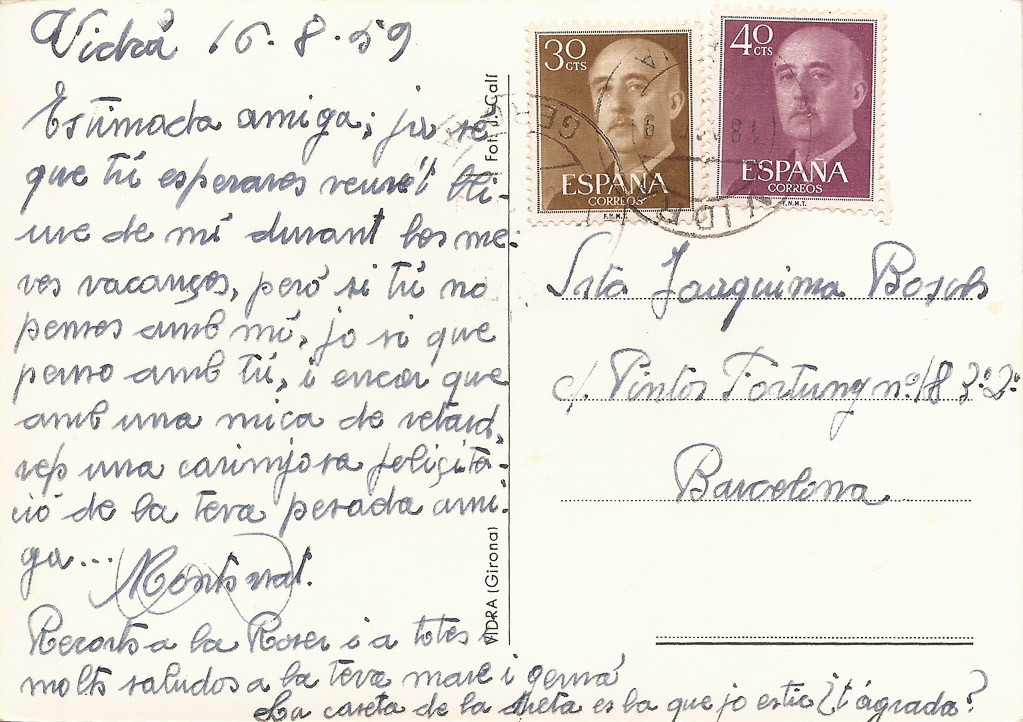 Vidrá 16.8.59
Estimada amiga; ja sé
que tú esperaves veure'l lliu-
ure de mí durant les me-
ves vacançes, però si tú no
penses amb mí, jo si que
penso amb tú, i encar que
amb una mica de retard,
rep una carinyosa feliçita-
ció de la teva pesada ami-
ga...
Montsrrat.
Recorts a la Roser i a totes i
molts saludos a la teva mare i germá
La caseta de la dreta es la que jo estic ¿t'ágrada?
VIDRA (Girona)
Fot. J. Calf
30 CTS
ESPAÑA
CORREOS
F.N.M.T.
40 CTS
ESPAÑA
CORREOS
F.N.M.T.
Srta Joaquima Bosch
c/. Pintor Fortuny nº 18 3º 2ª
Barcelona